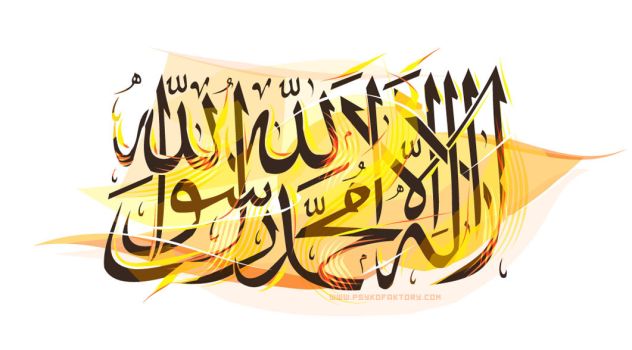 لا إله إلا الله محمد رسول الله
WWW.PSYKOFAKTORY.COM